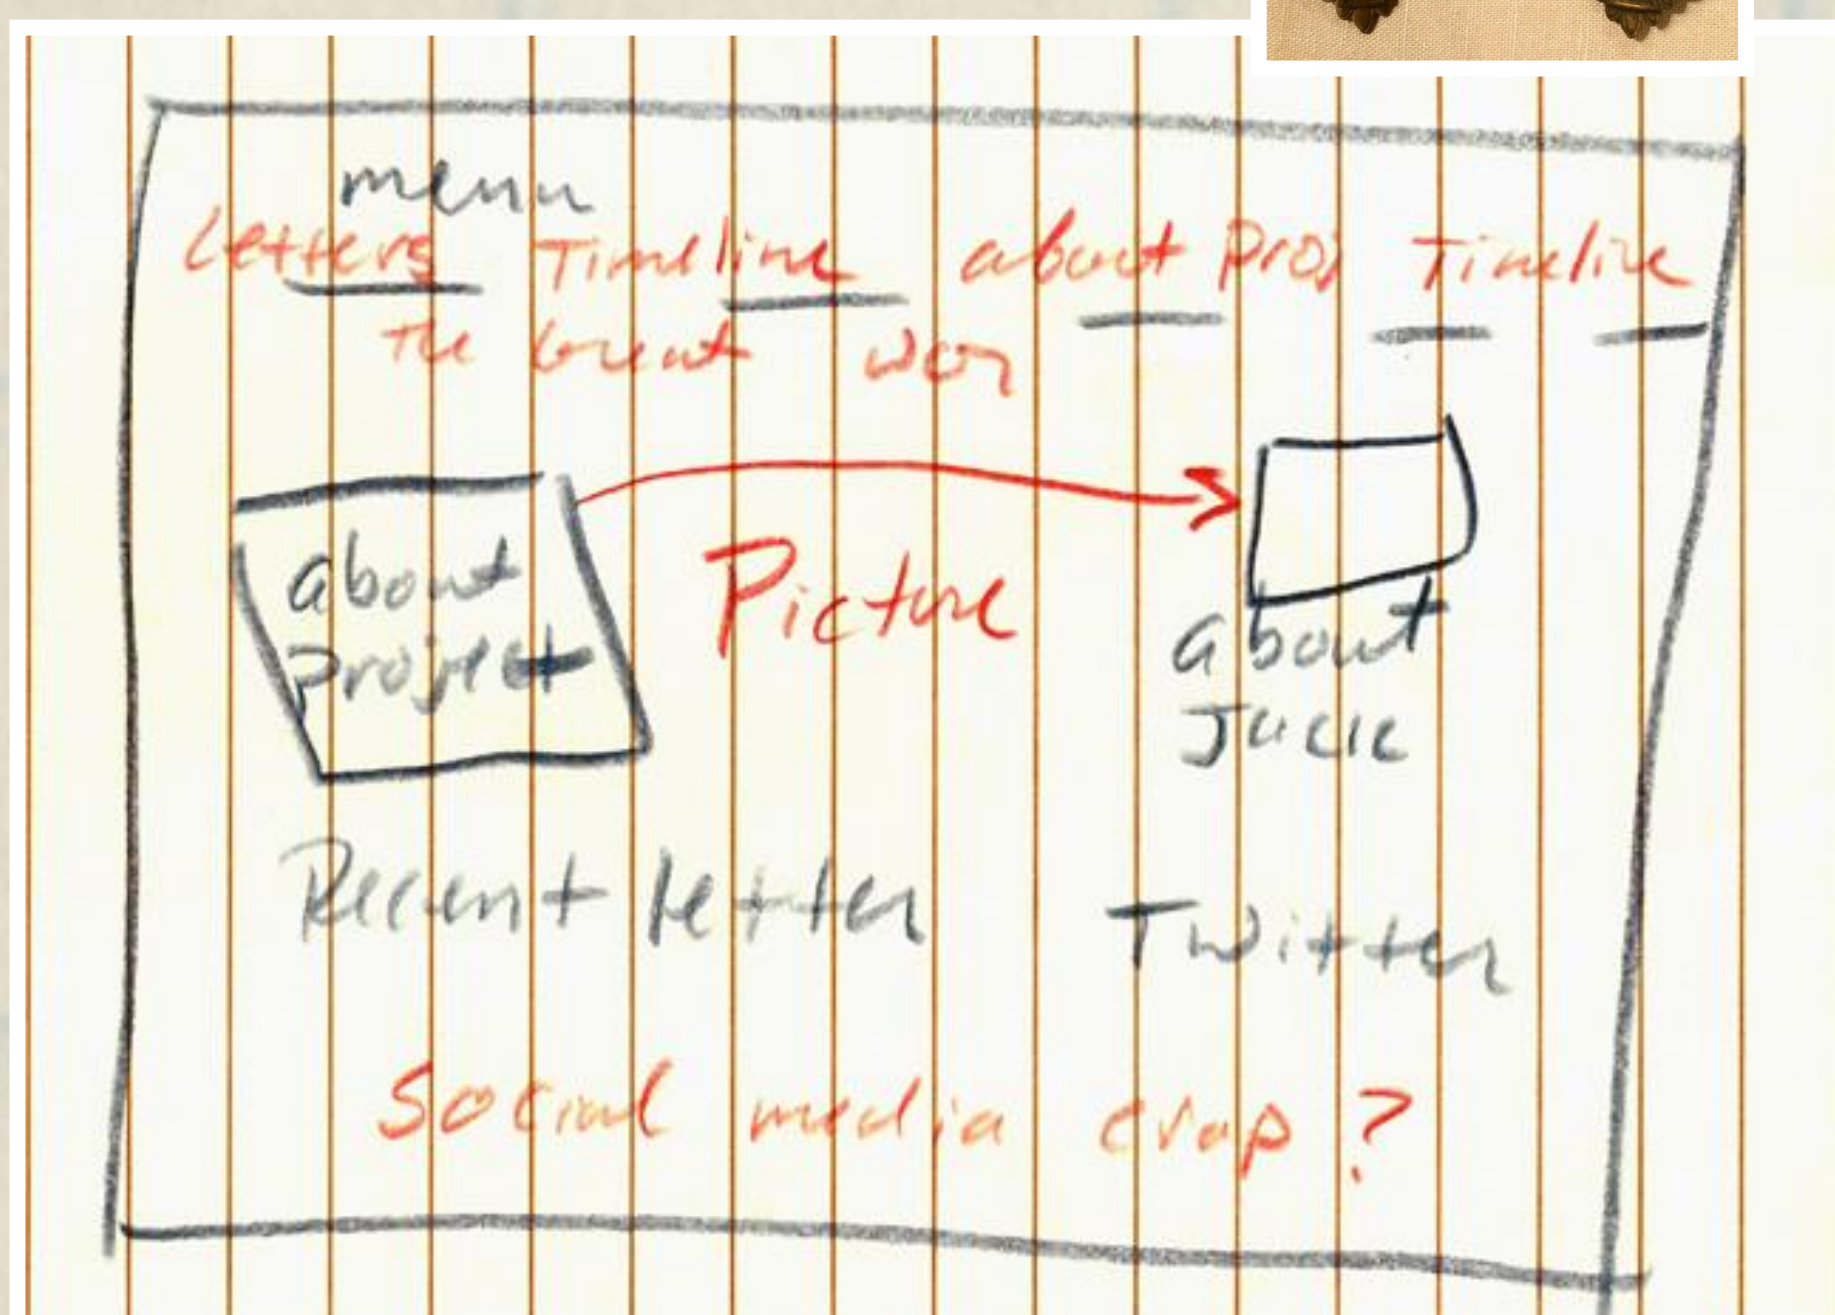 menu
Letters Timeline about Proj Timeline
The Great War
about
project
Picture
about
Recent letter
Twitter
Social media crap?